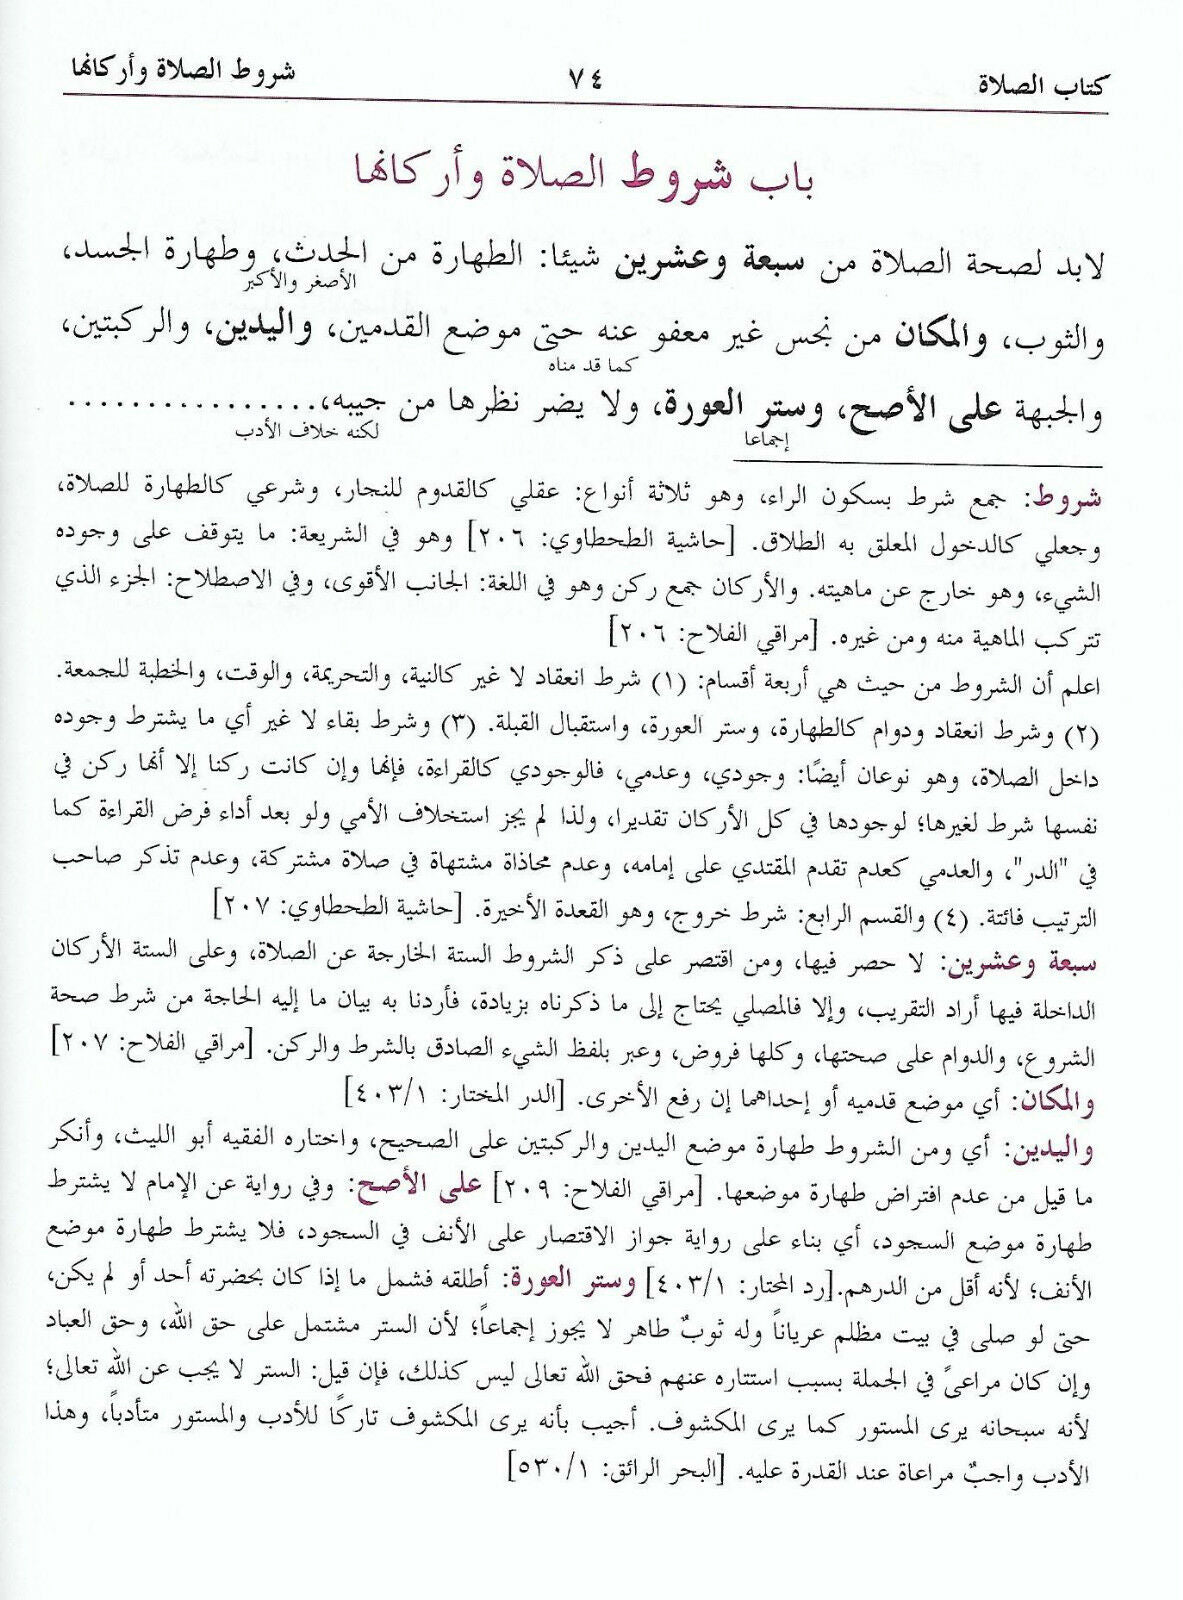 كتاب الصلاة ٧٤ شروط الصلاة وأركانها
باب شروط الصلاة وأركانها
لابد لصحة الصلاة من سبعة وعشرين شيئا: الطهارة من الحدث، وطهارة الجسد،
الأصغر والأكبر
والثوب، والمكان من نجس غير معفو عنه حتى موضع القدمين، واليدين، والركبتين،
كما قد مناه
والجبهة على الأصح، وستر العورة، ولا يضر نظرها من جيبه،................
إجماعا لكنه خلاف الأدب
شروط: جمع شرط بسكون الراء، وهو ثلاثة أنواع: عقلي كالقدوم للنجار، وشرعي كالطهارة للصلاة،
وجعلي كالدخول المعلق به الطلاق. [حاشية الطحطاوي: ٢٠٦] وهو في الشريعة: ما يتوقف على وجوده
الشيء، وهو خارج عن ماهيته. والأركان جمع ركن وهو في اللغة: الجانب الأقوى، وفي الاصطلاح: الجزء الذي
تتركب الماهية منه ومن غيره. [مراقي الفلاح: ٢٠٦]
اعلم أن الشروط من حيث هي أربعة أقسام: (١) شرط انعقاد لا غير كالنية، والتحريمة، والوقت، والخطبة للجمعة.
(٢) وشرط انعقاد ودوام كالطهارة، وستر العورة، واستقبال القبلة. (٣) وشرط بقاء لا غير أي ما يشترط وجوده
داخل الصلاة، وهو نوعان أيضًا: وجودي، وعدمي، فالوجودي كالقراءة، فإنها وإن كانت ركنا إلا أنها ركن في
نفسها شرط لغيرها؛ لوجودها في كل الأركان تقديرا، ولذا لم يجز استخلاف الأمي ولو بعد أداء فرض القراءة كما
في "الدر"، والعدمي كعدم تقدم المقتدي على إمامه، وعدم محاذاة مشتهاة في صلاة مشتركة، وعدم تذكر صاحب
الترتيب فائتة. (٤) والقسم الرابع: شرط خروج، وهو القعدة الأخيرة. [حاشية الطحطاوي: ٢٠٧]
سبعة وعشرين: لا حصر فيها، ومن اقتصر على ذكر الشروط الستة الخارجة عن الصلاة، وعلى الستة الأركان
الداخلة فيها أراد التقريب، وإلا فالمصلي يحتاج إلى ما ذكرناه بزيادة، فأردنا به بيان ما إليه الحاجة من شرط صحة
الشروع، والدوام على صحتها، وكلها فروض، وعبر بلفظ الشيء الصادق بالشرط والركن. [مراقي الفلاح: ٢٠٧]
والمكان: أي موضع قدميه أو إحداهما إن رفع الأخرى. [الدر المختار: ٤٠٣/١]
واليدين: أي ومن الشروط طهارة موضع اليدين والركبتين على الصحيح، واختاره الفقيه أبو الليث، وأنكر
ما قيل من عدم افتراض طهارة موضعها. [مراقي الفلاح: ٢٠٩] على الأصح: وفي رواية عن الإمام لا يشترط
طهارة موضع السجود، أي بناء على رواية جواز الاقتصار على الأنف في السجود، فلا يشترط طهارة موضع
الأنف؛ لأنه أقل من الدرهم.[رد المحتار: ٤٠٣/١] وستر العورة: أطلقه فشمل ما إذا كان بحضرته أحد أو لم يكن،
حتى لو صلى في بيت مظلم عرياناً وله ثوبٌ طاهر لا يجوز إجماعاً؛ لأن الستر مشتمل على حق الله، وحق العباد
وإن كان مراعىً في الجملة بسبب استتاره عنهم فحق الله تعالى ليس كذلك، فإن قيل: الستر لا يجب عن الله تعالى؛
لأنه سبحانه يرى المستور كما يرى المكشوف. أجيب بأنه يرى المكشوف تاركًا للأدب والمستور متأدباً، وهذا
الأدب واجبٌ مراعاة عند القدرة عليه. [البحر الرائق: ٥٣٠/١]